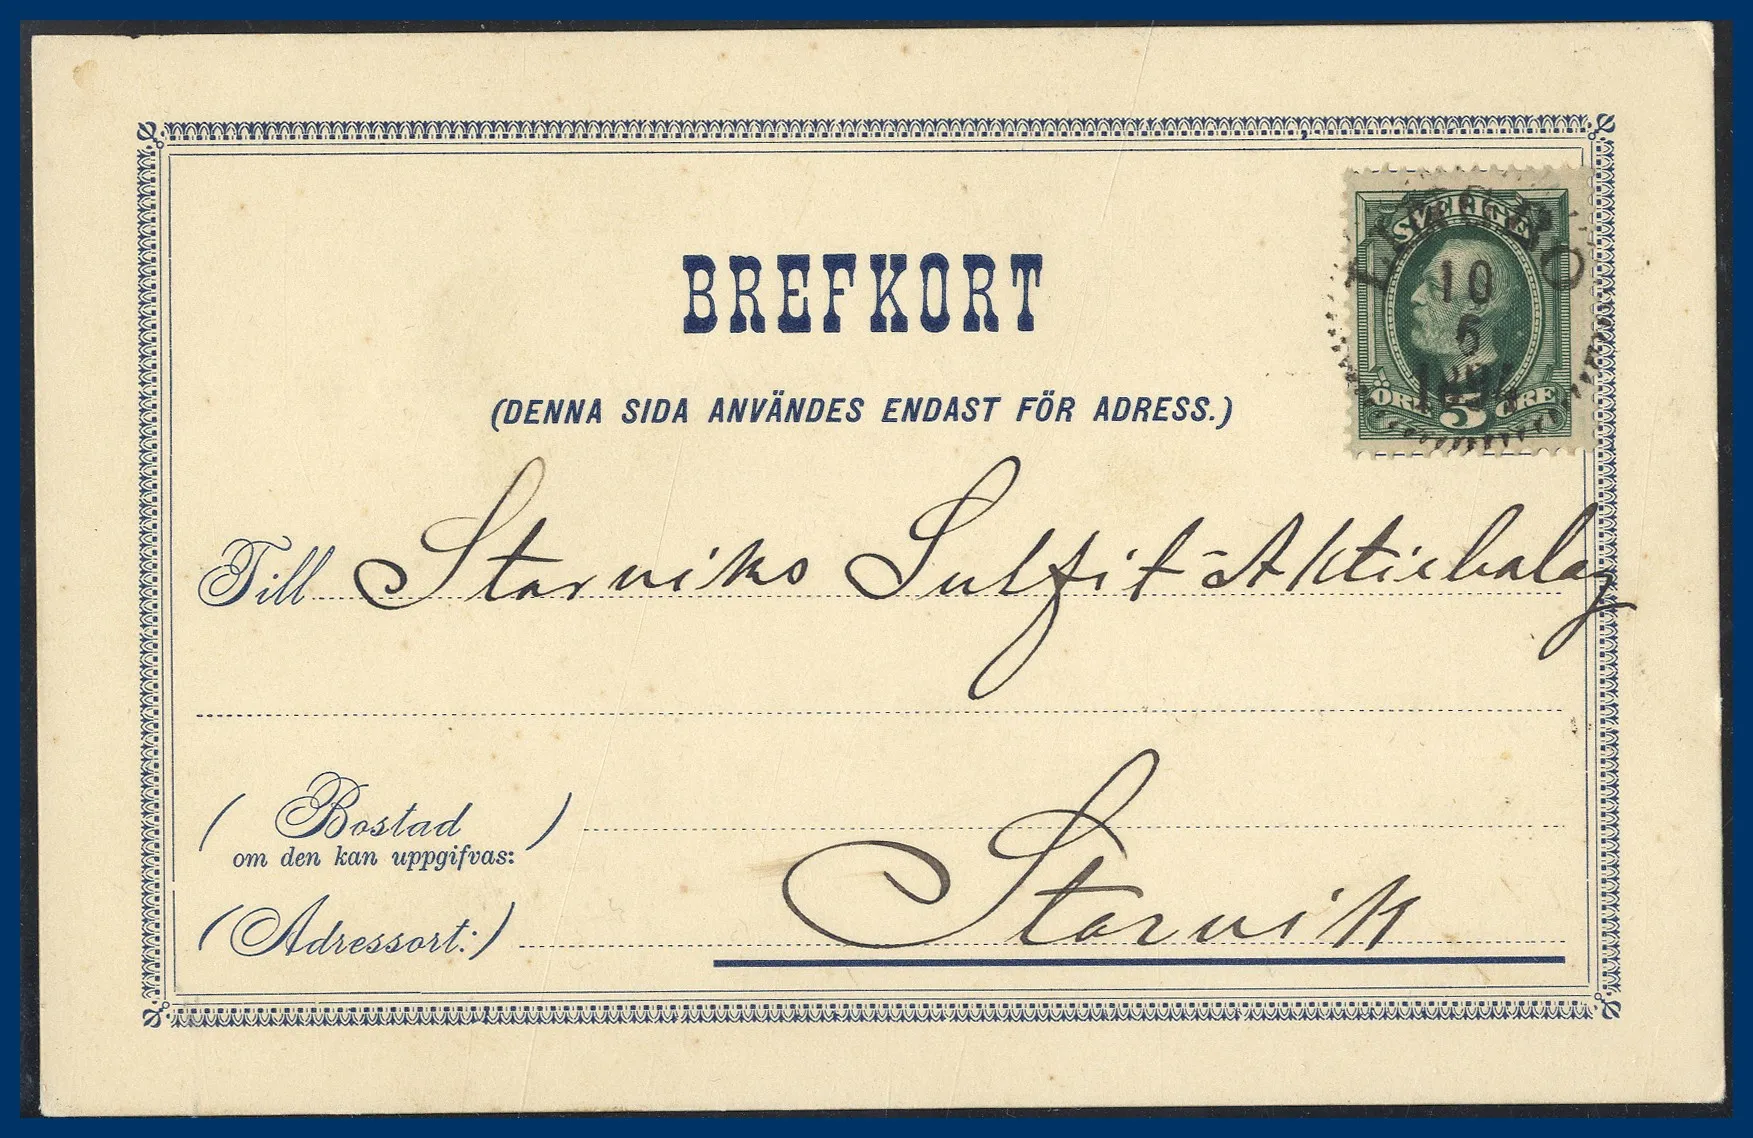 BREFKORT
(DENNA SIDA ANVÄNDES ENDAST FÖR ADRESS.)
SVERIGE
10
5
ÖRE 5 ÖRE
Till Storviks Sulfit-Aktiebolag
( Bostad )
om den kan uppgifvas:
(Adressort:) Storvik